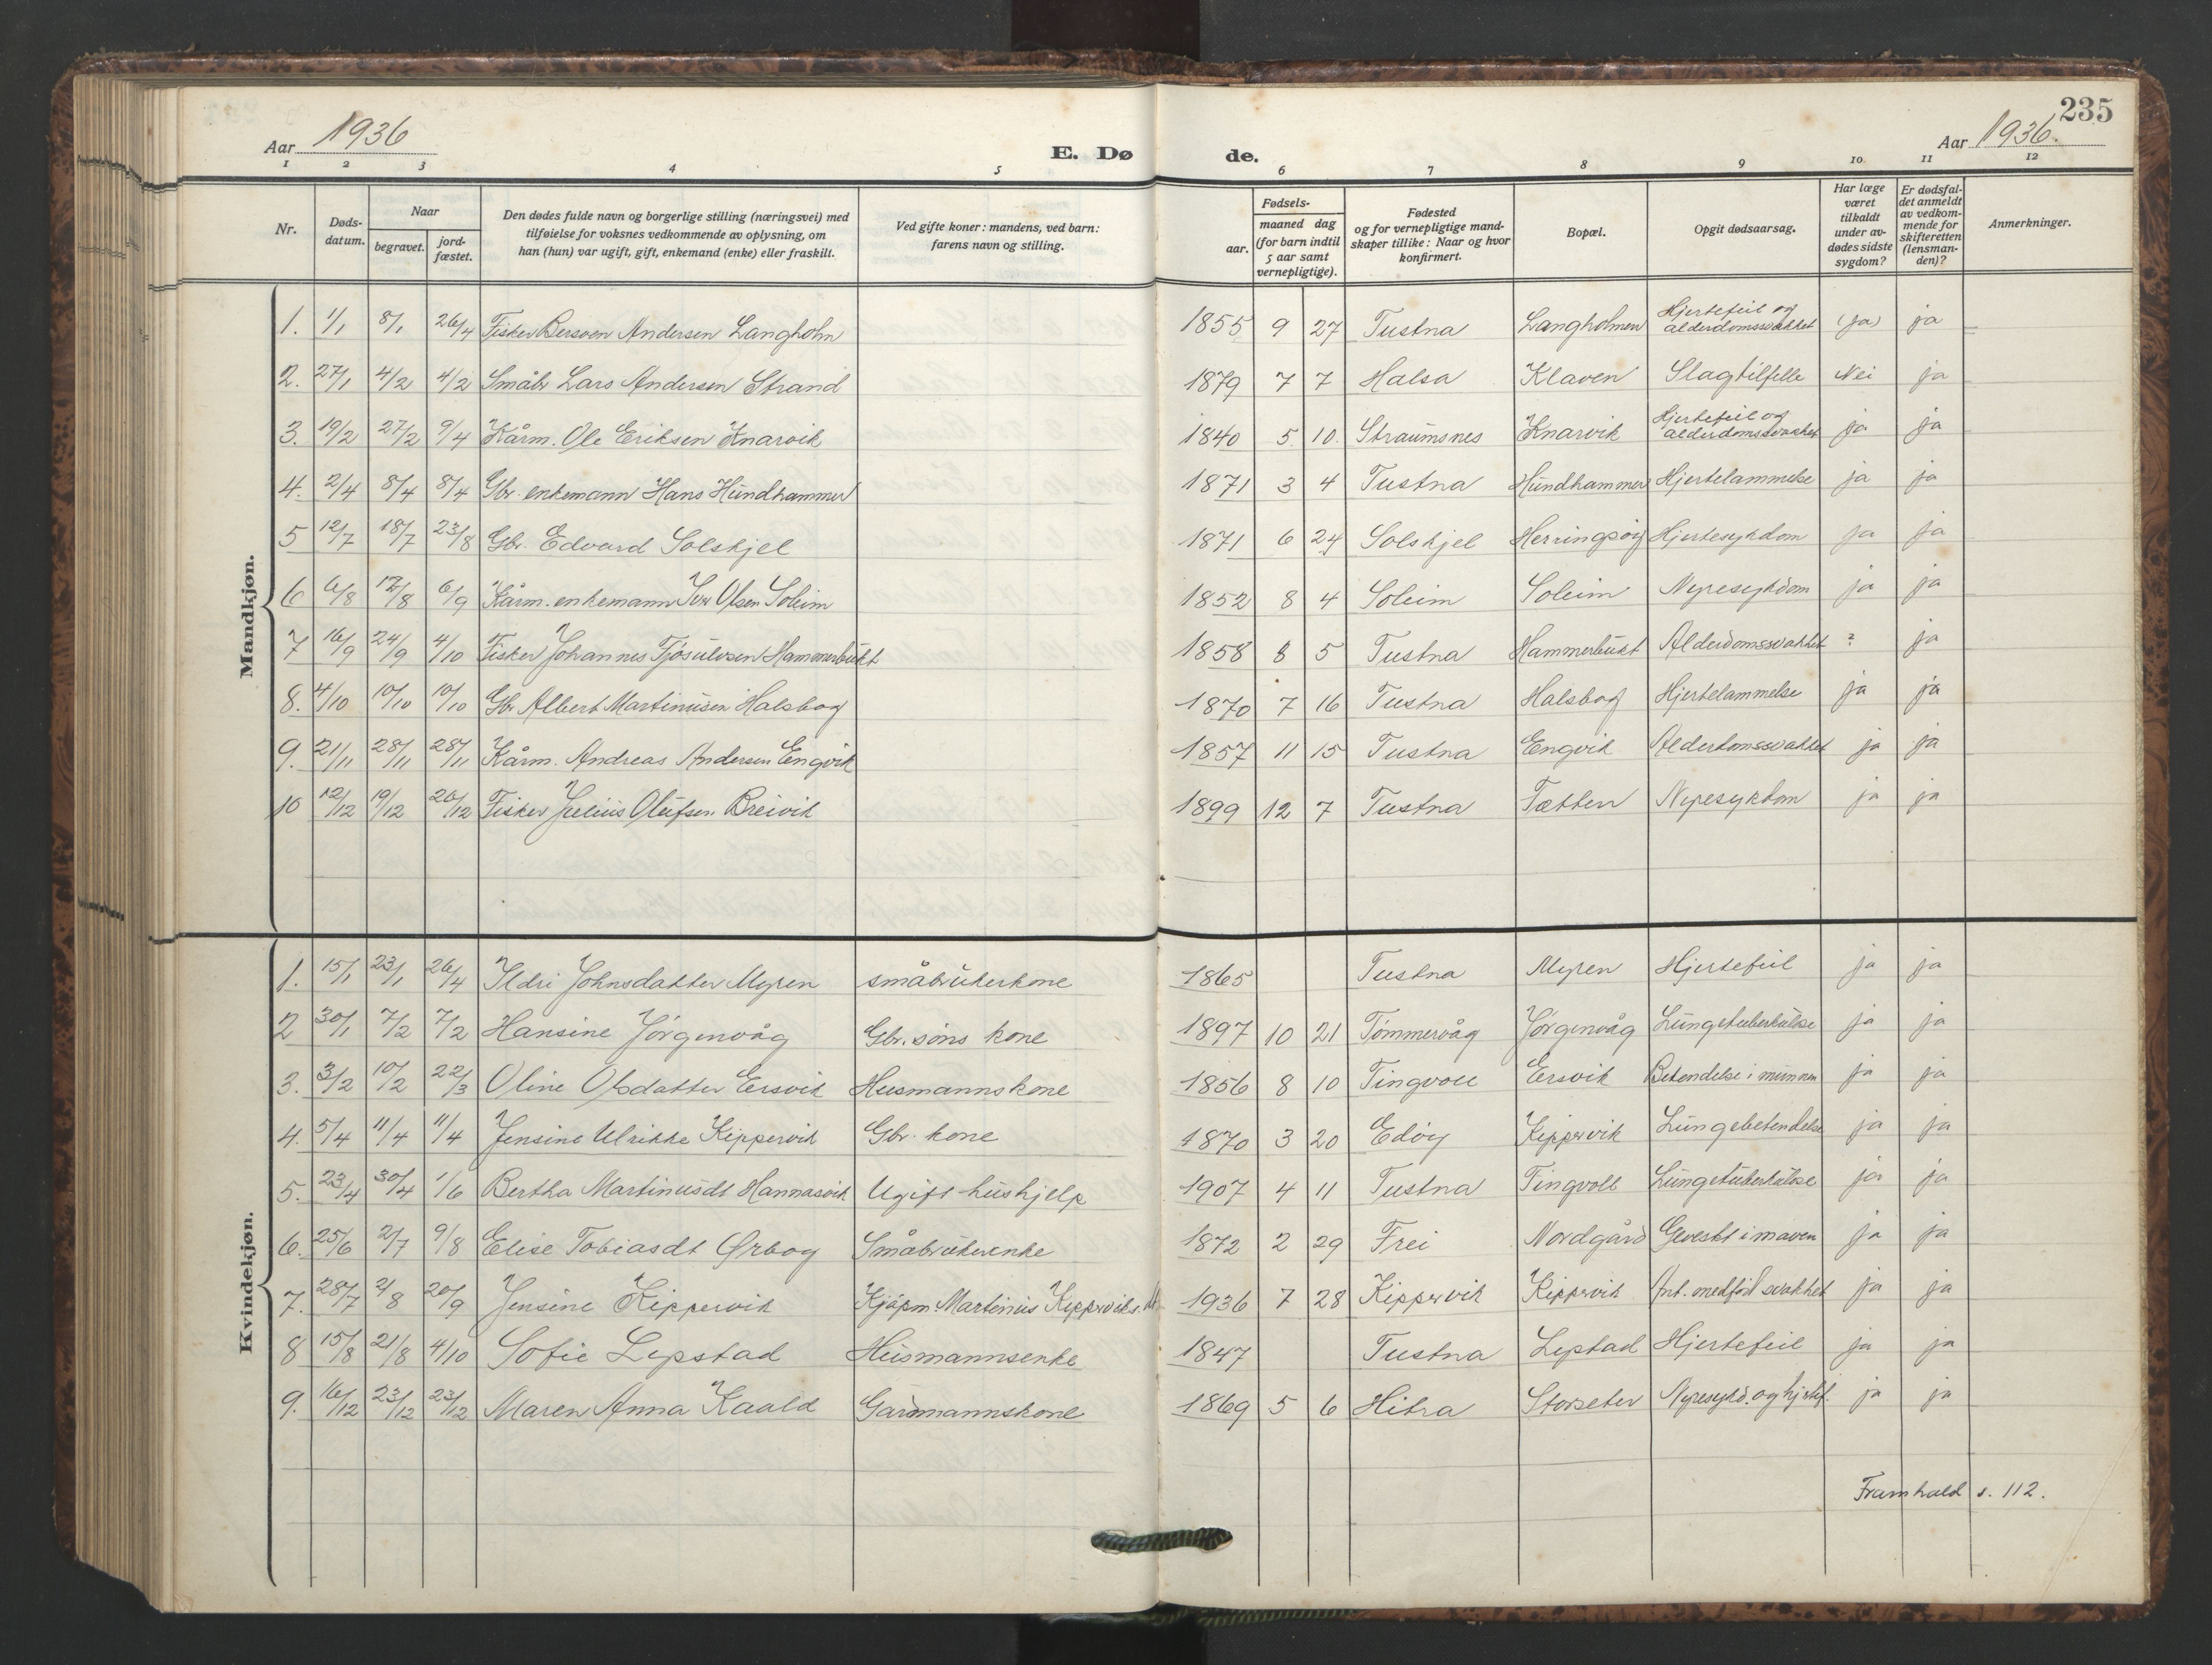 235
Aar 1936
E. Dø de.
Aar 1936.
1 2 3 4 5 6 7 8 9 10 11 12
Nr. Døds-datum. Naar begravet. jord-fæstet. Den dødes fulde navn og borgerlige stilling (næringsvei) med tilføielse for voksnes vedkommende av oplysning, om han (hun) var ugift, gift, enkemand (enke) eller fraskilt. Ved gifte koner: mandens, ved barn: farens navn og stilling. Fødsels- aar. maaned dag (for barn indtil 5 aar samt vernepligtige). Fødested og for vernepligtige mand-skaper tillike: Naar og hvor konfirmert. Bopæl. Opgit dødsaarsag. Har læge været tilkaldt under av-dødes sidste sygdom? Er dødsfal-det anmeldt av vedkom-mende for skifteretten (lensman-den)? Anmerkninger.
Mandkjøn.
1. 1/1 8/1 26/4 Fisker Bersven Andersen Langholm 1855 9 27 Tustna Langholmen Hjertefeil og alderdomssvakket (ja) ja
2. 27/1 4/2 4/2 Småbr Lars Andersen Strand 1879 7 7 Halsa Klaven Slagtilfelle Nei ja
3. 19/2 27/2 9/4 Kårm. Ole Eriksen Knarvik 1840 5. 10. Straumsnes Knarvik Hjertefeil og alderdomssvakket ja ja
4. 2/4 8/4 8/4 Gbr. enkemann Hans Hundhammer 1871 3 4 Tustna Hundhammer Hjertelammelse ja ja
5 12/7 18/7 23/8 Gbr. Edvard Solskjel 1871 6 24 Solskjel Herringsøy Hjertesykdom ja ja
6 6/8 12/8 6/9 Kårm. enkemann Iver Olsen Soleim 1852 8 4 Soleim Soleim Nyresykdom ja ja
7 16/9 24/9 4/10 Fisker Johannes Tjøsulvsen Hammerbukt 1858 8 5 Tustna Hammerbukt Alderdomssvakket ? ja
8. 4/10 10/10 10/10 Gbr Albert Martinusen Halsbog 1870 7 16 Tustna Halsbog Hjertelammelse ja ja
9. 21/11 28/11 28/11 Kårm. Andreas Andersen Engvik 1857 11 15 Tustna Engvik Alderdomssvakket ja ja
10 12/12 19/12 20/12 Fisker Julius Olufsen Breivik 1899 12 7 Tustna Tætten Nyresykdom ja ja
Kvindekjøn.
1. 15/1 23/1 26/4 Ildri Johnsdatter Myren småbrukerkone 1865 Tustna Myren Hjertefeil ja ja
2 30/1 7/2 7/2 Hansine Jørgenvåg Gbr. søns kone 1897 10 21 Tømmervåg Jørgenvåg Lungetuberkulose ja ja
3. 3/2 10/2 22/3 Oline Olsdatter Ersvik Husmannskone 1856 8 10 Tingvoll Ersvik Betendelse i munnen ja ja
4. 5/4 11/4 11/4 Jensine Ulrikke Kippervik Gbr. kone 1870 3 20 Edøy Kippervik Lungebetendelse ja ja
5. 23/4 30/4 1/6 Bertha Martinusdt Hannasvik Ugift hushjelp 1907 4 11 Tustna Tingvoll Lungetuberkulose ja ja
6. 25/6 2/7 9/8 Elise Tobiasdt Ørbog Småbrukerenke 1872 2 29 Frei Nordgård Gevekst i maven ja ja
7. 28/7 2/8 20/9 Jensine Kippervik Kjøpm Martinus Kipperviks. dt 1936 7 28 Kippervik Kippervik Ant. medfød svakket ja ja
8 15/8 21/8 4/10 Sofie Lepstad Husmannsenke 1847 Tustna Lepstad Hjertefeil ja ja
9. 16/12 23/12 23/12 Maren Anna Kaald Gardmannskone 1869 5 6 Hitra Storseter Nyresykd. og hjertef. ja ja
Framhald s. 112.